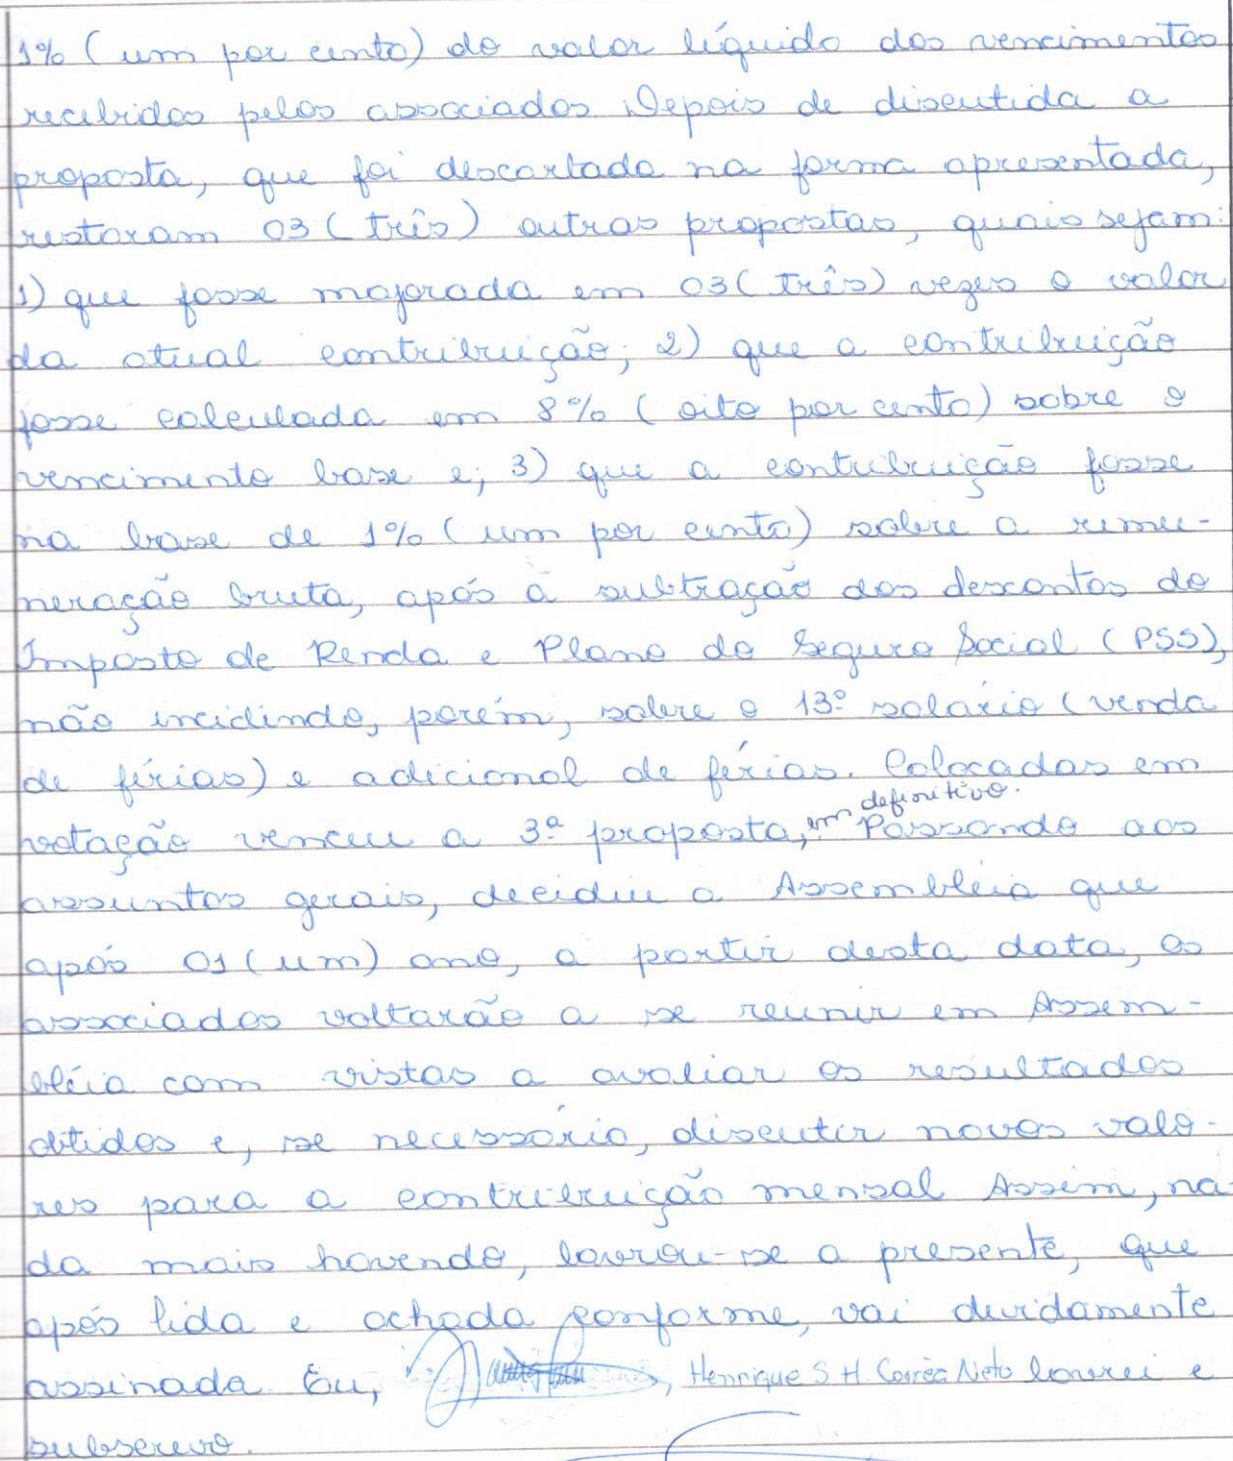 1% (um por cento) do valor líquido dos vencimentos
recebidos pelos associados. Depois de discutida a
proposta, que foi descartada na forma apresentada,
restaram 03 (três) outras propostas, quais sejam:
1) que fosse majorada em 03 (três) vezes o valor
da atual contribuição; 2) que a contribuição
fosse calculada em 8% (oito por cento) sobre o
vencimento base e; 3) que a contribuição fosse
na base de 1% (um por cento) sobre a remu-
neração bruta, após a subtração dos descontos do
Imposto de Renda e Plano do Seguro Social (PSS),
não incidindo, porém, sobre o 13º salário (venda
de férias) e adicional de férias. Colocadas em
votação venceu a 3ª proposta, em definitivo. Passando aos
assuntos gerais, decidiu a Assembléia que
após 01 (um) ano, a partir desta data, os
associados voltarão a se reunir em Assem-
bléia com vistas a avaliar os resultados
obtidos e, se necessário, discutir novos valo-
res para a contribuição mensal Assim, na-
da mais havendo, lavrou-se a presente, que
após lida e achada conforme, vai devidamente
assinada. Eu, , Henrique S H. Corrêa Neto lavrei e
subscrevo.